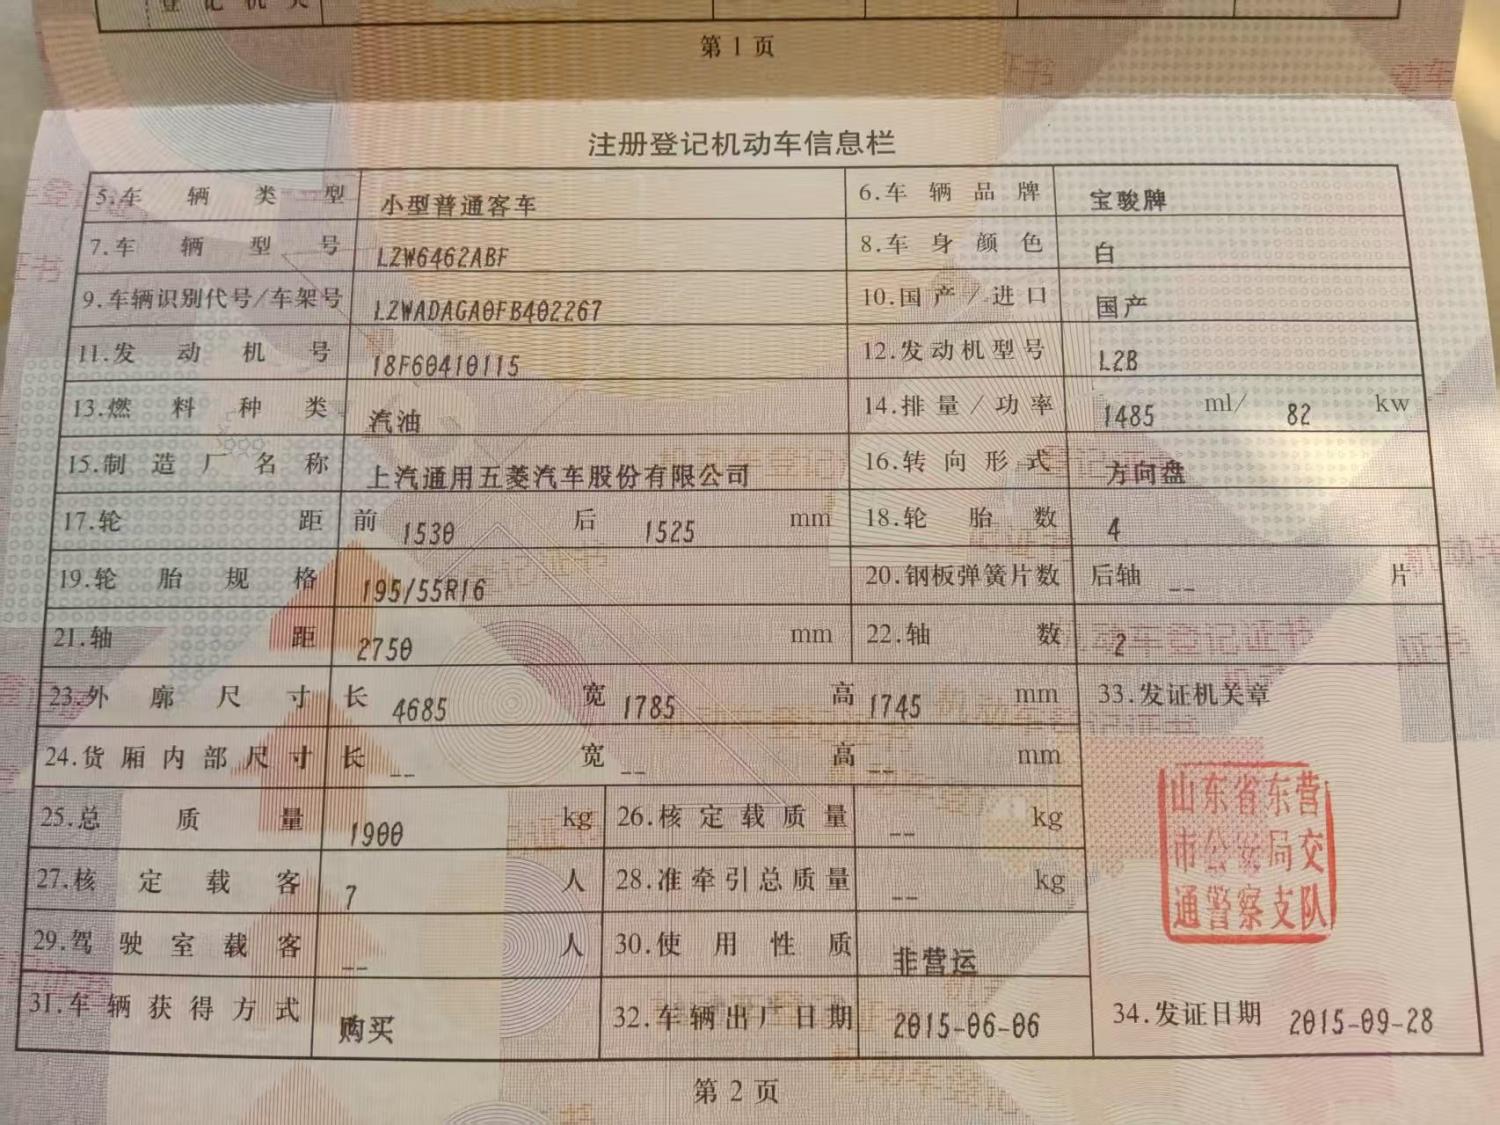 登记机关
第 1 页
注册登记机动车信息栏
5.车辆类型 小型普通客车 6.车辆品牌 宝骏牌
7.车辆型号 LZW6462ABF 8.车身颜色 白
9.车辆识别代号/车架号 LZWADAGA0FB402267 10.国产/进口 国产
11.发动机号 18F60410115 12.发动机型号 L2B
13.燃料种类 汽油 14.排量/功率 1485 ml/ 82 kw
15.制造厂名称 上汽通用五菱汽车股份有限公司 16.转向形式 方向盘
17.轮距 前 1530 后 1525 mm 18.轮胎数 4
19.轮胎规格 195/55R16 20.钢板弹簧片数 后轴 -- 片
21.轴距 2750 mm 22.轴数 2
23.外廓尺寸 长 4685 宽 1785 高 1745 mm 33.发证机关章
24.货厢内部尺寸 长 -- 宽 -- 高 -- mm
25.总质量 1900 kg 26.核定载质量 -- kg
27.核定载客 7 人 28.准牵引总质量 -- kg
29.驾驶室载客 -- 人 30.使用性质 非营运
31.车辆获得方式 购买 32.车辆出厂日期 2015-06-06 34.发证日期 2015-09-28
山东省东营
市公安局交
通警察支队
第 2 页